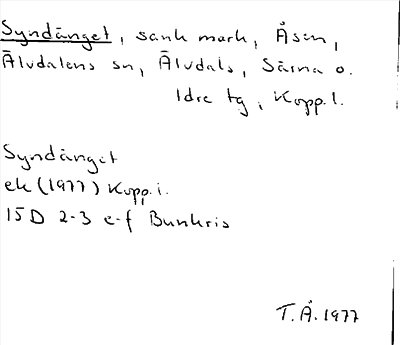 Syndänget, sank mark, Åsen,
Älvdalens sn, Älvdals, Särna o.
Idre tg, Kopp. l.
Syndänget
ek (1977) Kopp. i.
15D 2-3 e-f Bunkris
T.Å. 1977